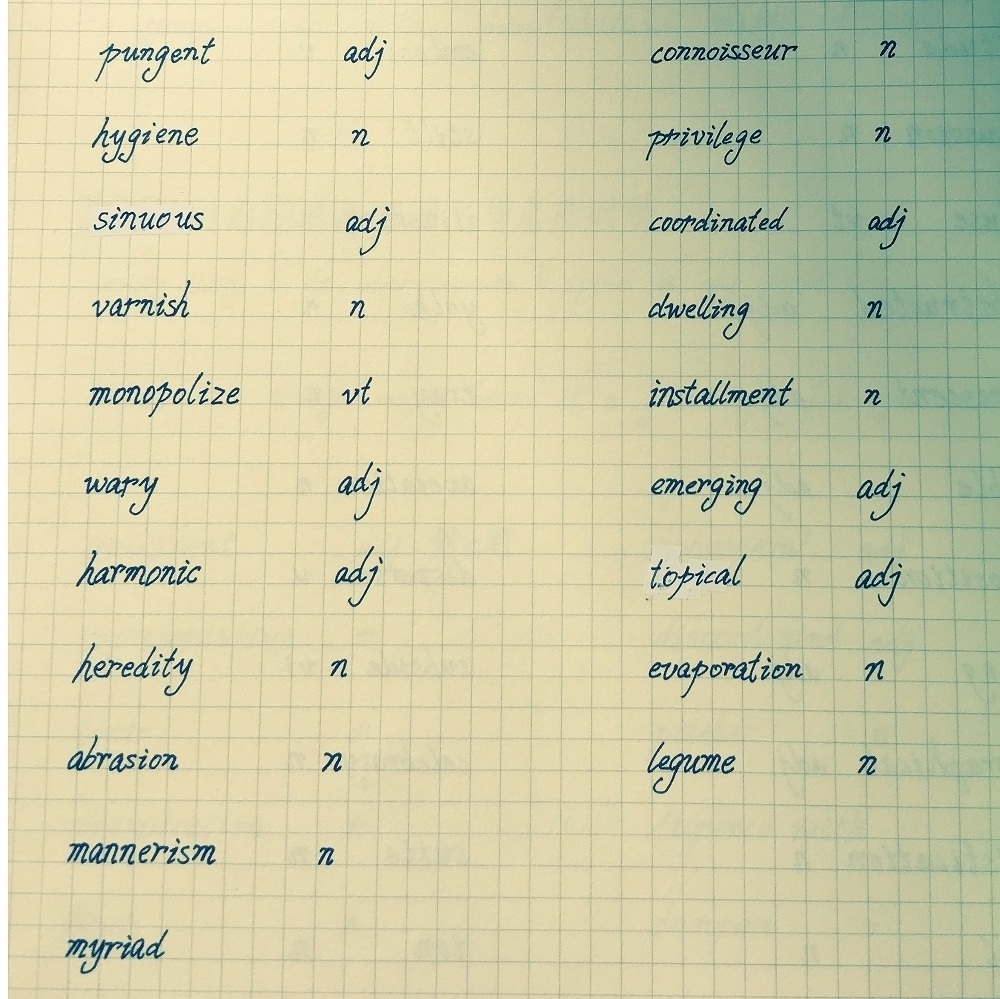 pungent adj
hygiene n
sinuous adj
varnish n
monopolize vt
wary adj
harmonic adj
heredity n
abrasion n
mannerism n
myriad
connoisseur n
privilege n
coordinated adj
dwelling n
installment n
emerging adj
topical adj
evaporation n
legume n